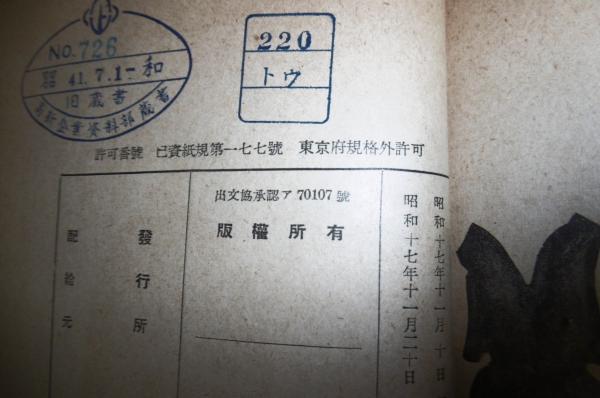 NO.726
昭 41.7.1 和
旧蔵書
企業資料部蔵書
220
トウ
許可番號 巳資紙規第一七七號 東京府規格外許可
昭和十七年十一月十日
昭和十七年十一月二十日
出文協承認ア 70107 號
版權所有
發行所
配給元